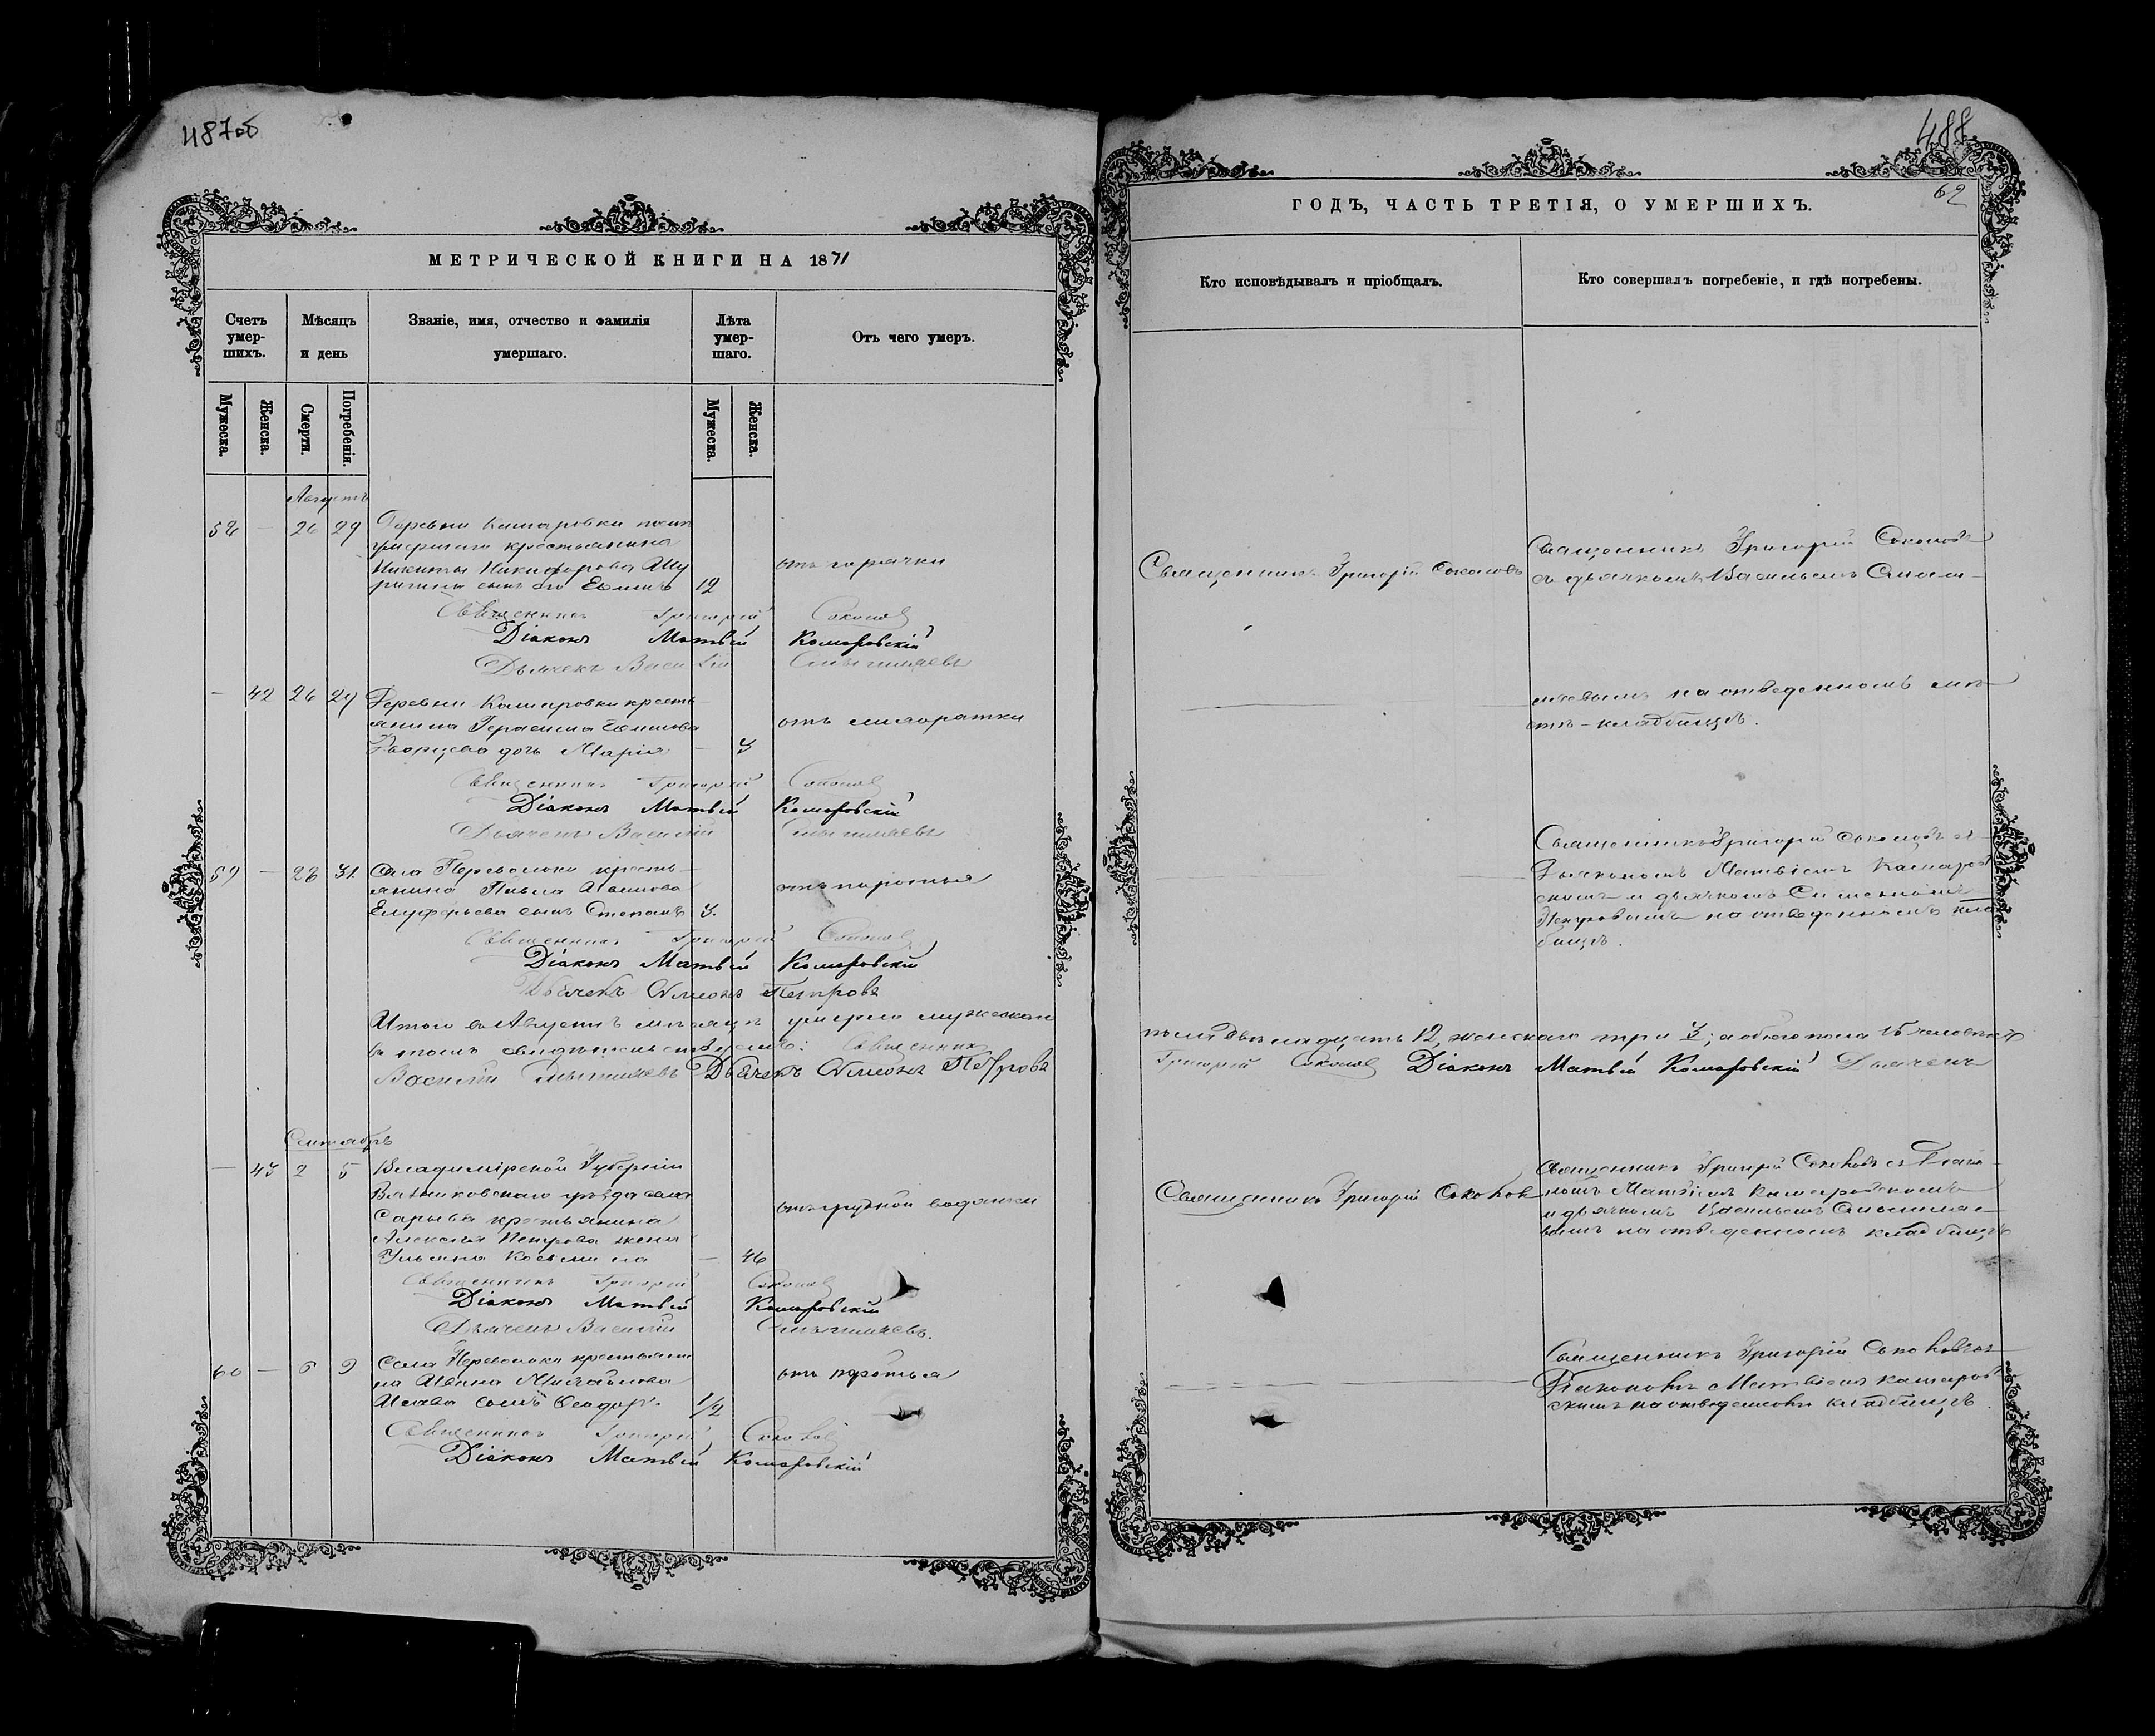 487об
МЕТРИЧЕСКОЙ КНИГИ НА 1871
Счетъ умер-шихъ.
Мѣсяцъ и день
Званіе, имя, отчество и фамилія умершаго.
Лѣта умер-шаго.
Отъ чего умеръ.
Мужеска.
Женска.
Смерти.
Погребенія.
Мужеска.
Женска.
Августъ
58 — 26 29 Деревни Камаровки
умершаго крестьянина
Никиты Никифорова
сынъ его 12
отъ горячки
Священникъ Григорій Соколов
Діаконъ Матвѣй Комаровскій
Дьячекъ Василій
— 42 26 29 Деревни Камаровки кресть-
янина Герасима
дочь Марія — 3
Священникъ Григорій Соколов
Діаконъ Матвѣй Комаровскій
Дьячекъ Василій
59 — 28 31 Села Переволоки кресть-
янина Павла
Елуферьева сынъ Степанъ 3.
Священникъ Григорій Соколов
Діаконъ Матвѣй Комаровскій
Дьячекъ Симеонъ Петровъ
Итого въ Августѣ мѣсяцѣ умерло мужескаго
въ томъ Священникъ
Василій Дьячекъ Симеонъ Петровъ
Сентябрь
— 43 2 5 Владимірской Губерніи
Вязниковскаго уѣзда села
Сарыева крестьянина
Алексѣя Петрова жена
Ульяна — 46
отъ грудной водянки
Священникъ Григорій Соколов
Діаконъ Матвѣй Комаровскій
Дьячекъ Василій
60 — 6 9 Села Переволоки крестьяни
на Ивана Михайлова
сынъ Ѳеодоръ 1/2
отъ поротья
Священникъ Григорій Соколов
Діаконъ Матвѣй Комаровскій
488
62
ГОДЪ, ЧАСТЬ ТРЕТІЯ, О УМЕРШИХЪ.
Кто исповѣдывалъ и пріобщалъ.
Кто совершалъ погребеніе, и гдѣ погребены.
Священникъ Григорій Соколовъ
Священникъ Григорій Соколовъ
съ дьячкомъ Васильемъ
на отведенномъ мѣ-
стѣ - кладбищѣ.
Священникъ Григорій Соколовъ съ
Діакономъ Матвіемъ Камаров
скимъ и дьячкомъ Симеономъ
Петровымъ на отведенномъ кла
бищѣ.
пола двѣнадцать 12, женскаго три 3; а обоего пола 15 человѣкъ
Григорій Соколов Діаконъ Матвѣй Комаровскій Дьячекъ
Священникъ Григорій Соколов
Священникъ Григорій Соколовъ съ Діако-
номъ Матвіемъ Камаровскимъ
и дьячкомъ Васильемъ
на отведенномъ кладбищѣ
Священникъ Григорій Соколовъ съ
Діакономъ Матвіемъ Камаров
скимъ на отведенномъ кладбищѣ.